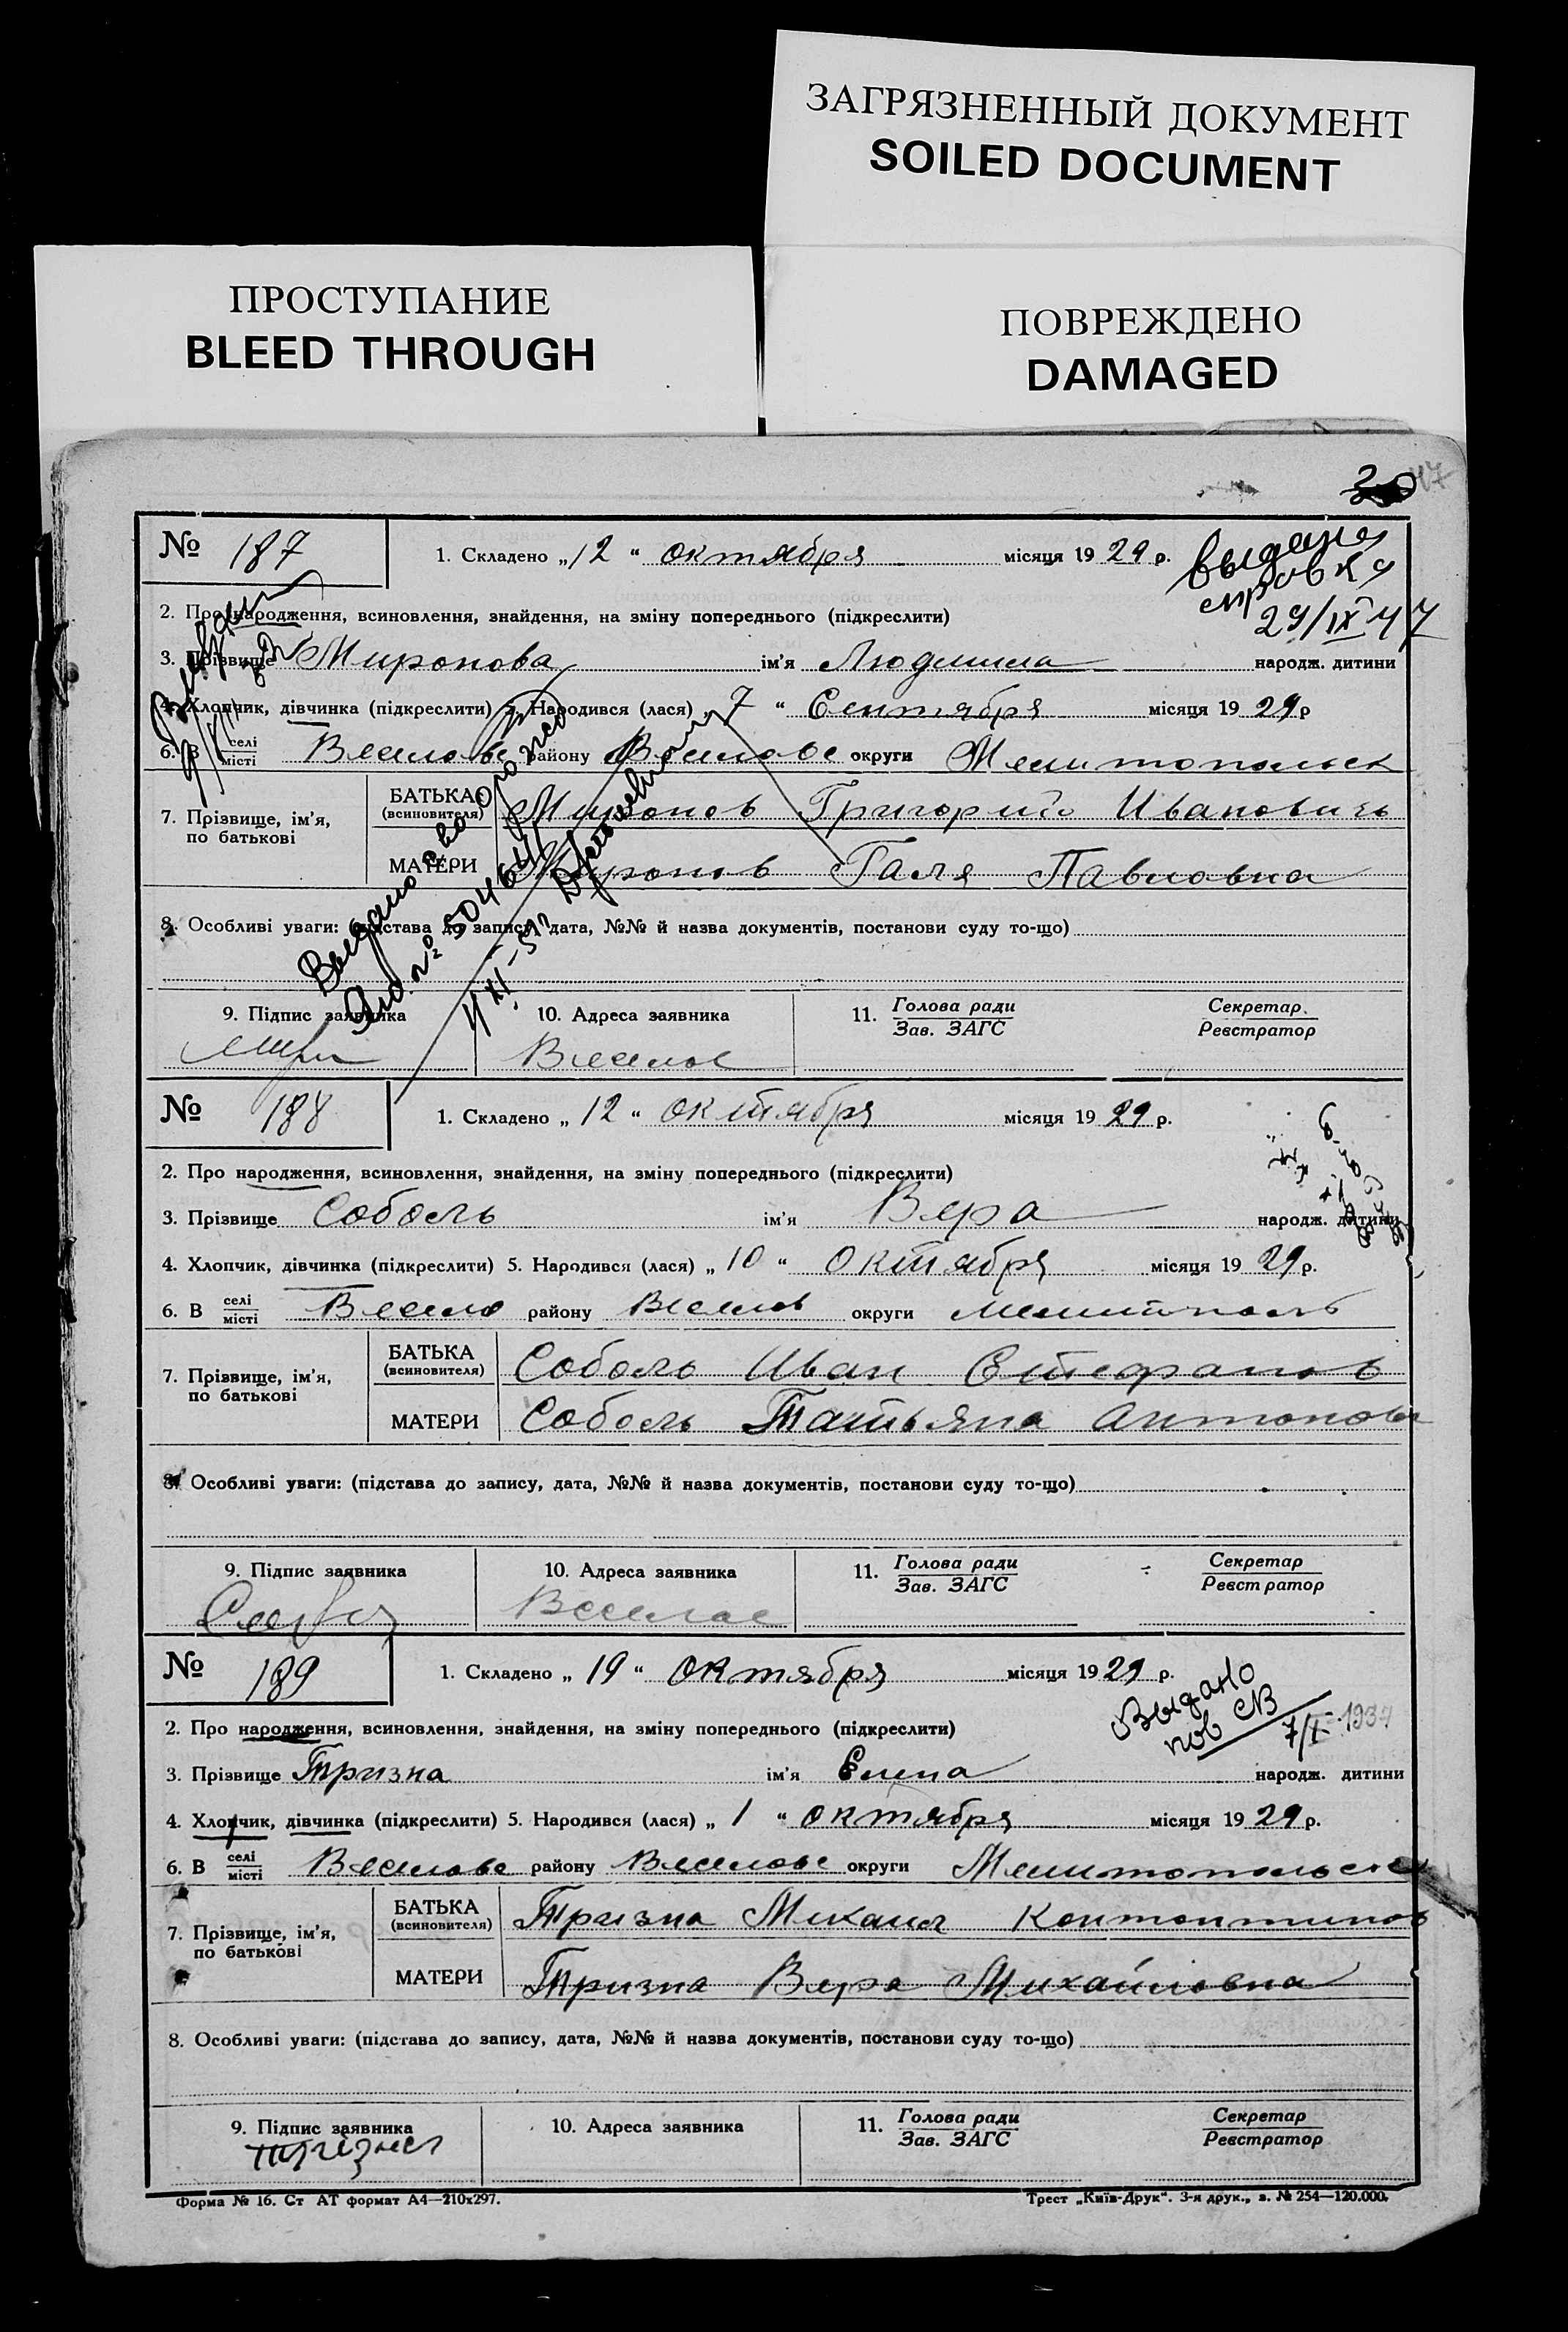 ЗАГРЯЗНЕННЫЙ ДОКУМЕНТ
SOILED DOCUMENT
ПРОСТУПАНИЕ
BLEED THROUGH
ПОВРЕЖДЕНО
DAMAGED
47
№ 187
1. Складено „12“ октября місяця 1929 р.
выдана
справка
29/IX 47
2. Про народження, всиновлення, знайдення, на зміну попереднього (підкреслити)
3. Прізвище Миронова ім'я Людмила народж. дитини
4. Хлопчик, дівчинка (підкреслити) 5. Народився (лася) „7“ Сентября місяця 1929 р
6. В селі/місті Веселове району Веселове округи Мелитопольск
7. Прізвище, ім'я, по батькові
БАТЬКА (всиновителя) Миронов Григорий Иванович
МАТЕРИ Миронов Галя Павловна
Выдано
8. Особливі уваги: (підстава до запису, дата, №№ й назва документів, постанови суду то-що)
9. Підпис заявника
10. Адреса заявника
11. Голова ради / Зав. ЗАГС
Секретар / Реєстратор
Веселое
№ 188
1. Складено „12“ октября місяця 1929 р.
2. Про народження, всиновлення, знайдення, на зміну попереднього (підкреслити)
3. Прізвище Соболь ім'я Вера народж. дитини
4. Хлопчик, дівчинка (підкреслити) 5. Народився (лася) „10“ Октября місяця 1929 р.
6. В селі/місті Весело району Веселов округи Мелитополь
7. Прізвище, ім'я, по батькові
БАТЬКА (всиновителя) Соболь Иван Стефанов
МАТЕРИ Соболь Татьяна Антонова
8. Особливі уваги: (підстава до запису, дата, №№ й назва документів, постанови суду то-що)
9. Підпис заявника
10. Адреса заявника
11. Голова ради / Зав. ЗАГС
Секретар / Реєстратор
Веселое
№ 189
1. Складено „19“ октября місяця 1929 р.
Выдано
пов СВ
7/I-1934
2. Про народження, всиновлення, знайдення, на зміну попереднього (підкреслити)
3. Прізвище Тризна ім'я Елена народж. дитини
4. Хлопчик, дівчинка (підкреслити) 5. Народився (лася) „1“ октября місяця 1929 р.
6. В селі/місті Веселове району Веселове округи
7. Прізвище, ім'я, по батькові
БАТЬКА (всиновителя) Тризна Михаил Контонтинов
МАТЕРИ Тризна Вера Михайловна
8. Особливі уваги: (підстава до запису, дата, №№ й назва документів, постанови суду то-що)
9. Підпис заявника
10. Адреса заявника
11. Голова ради / Зав. ЗАГС
Секретар / Реєстратор
Форма № 16. Ст АТ формат А4—210х297.
Трест „Київ-Друк“. 3-я друк., з. № 254—120.000.